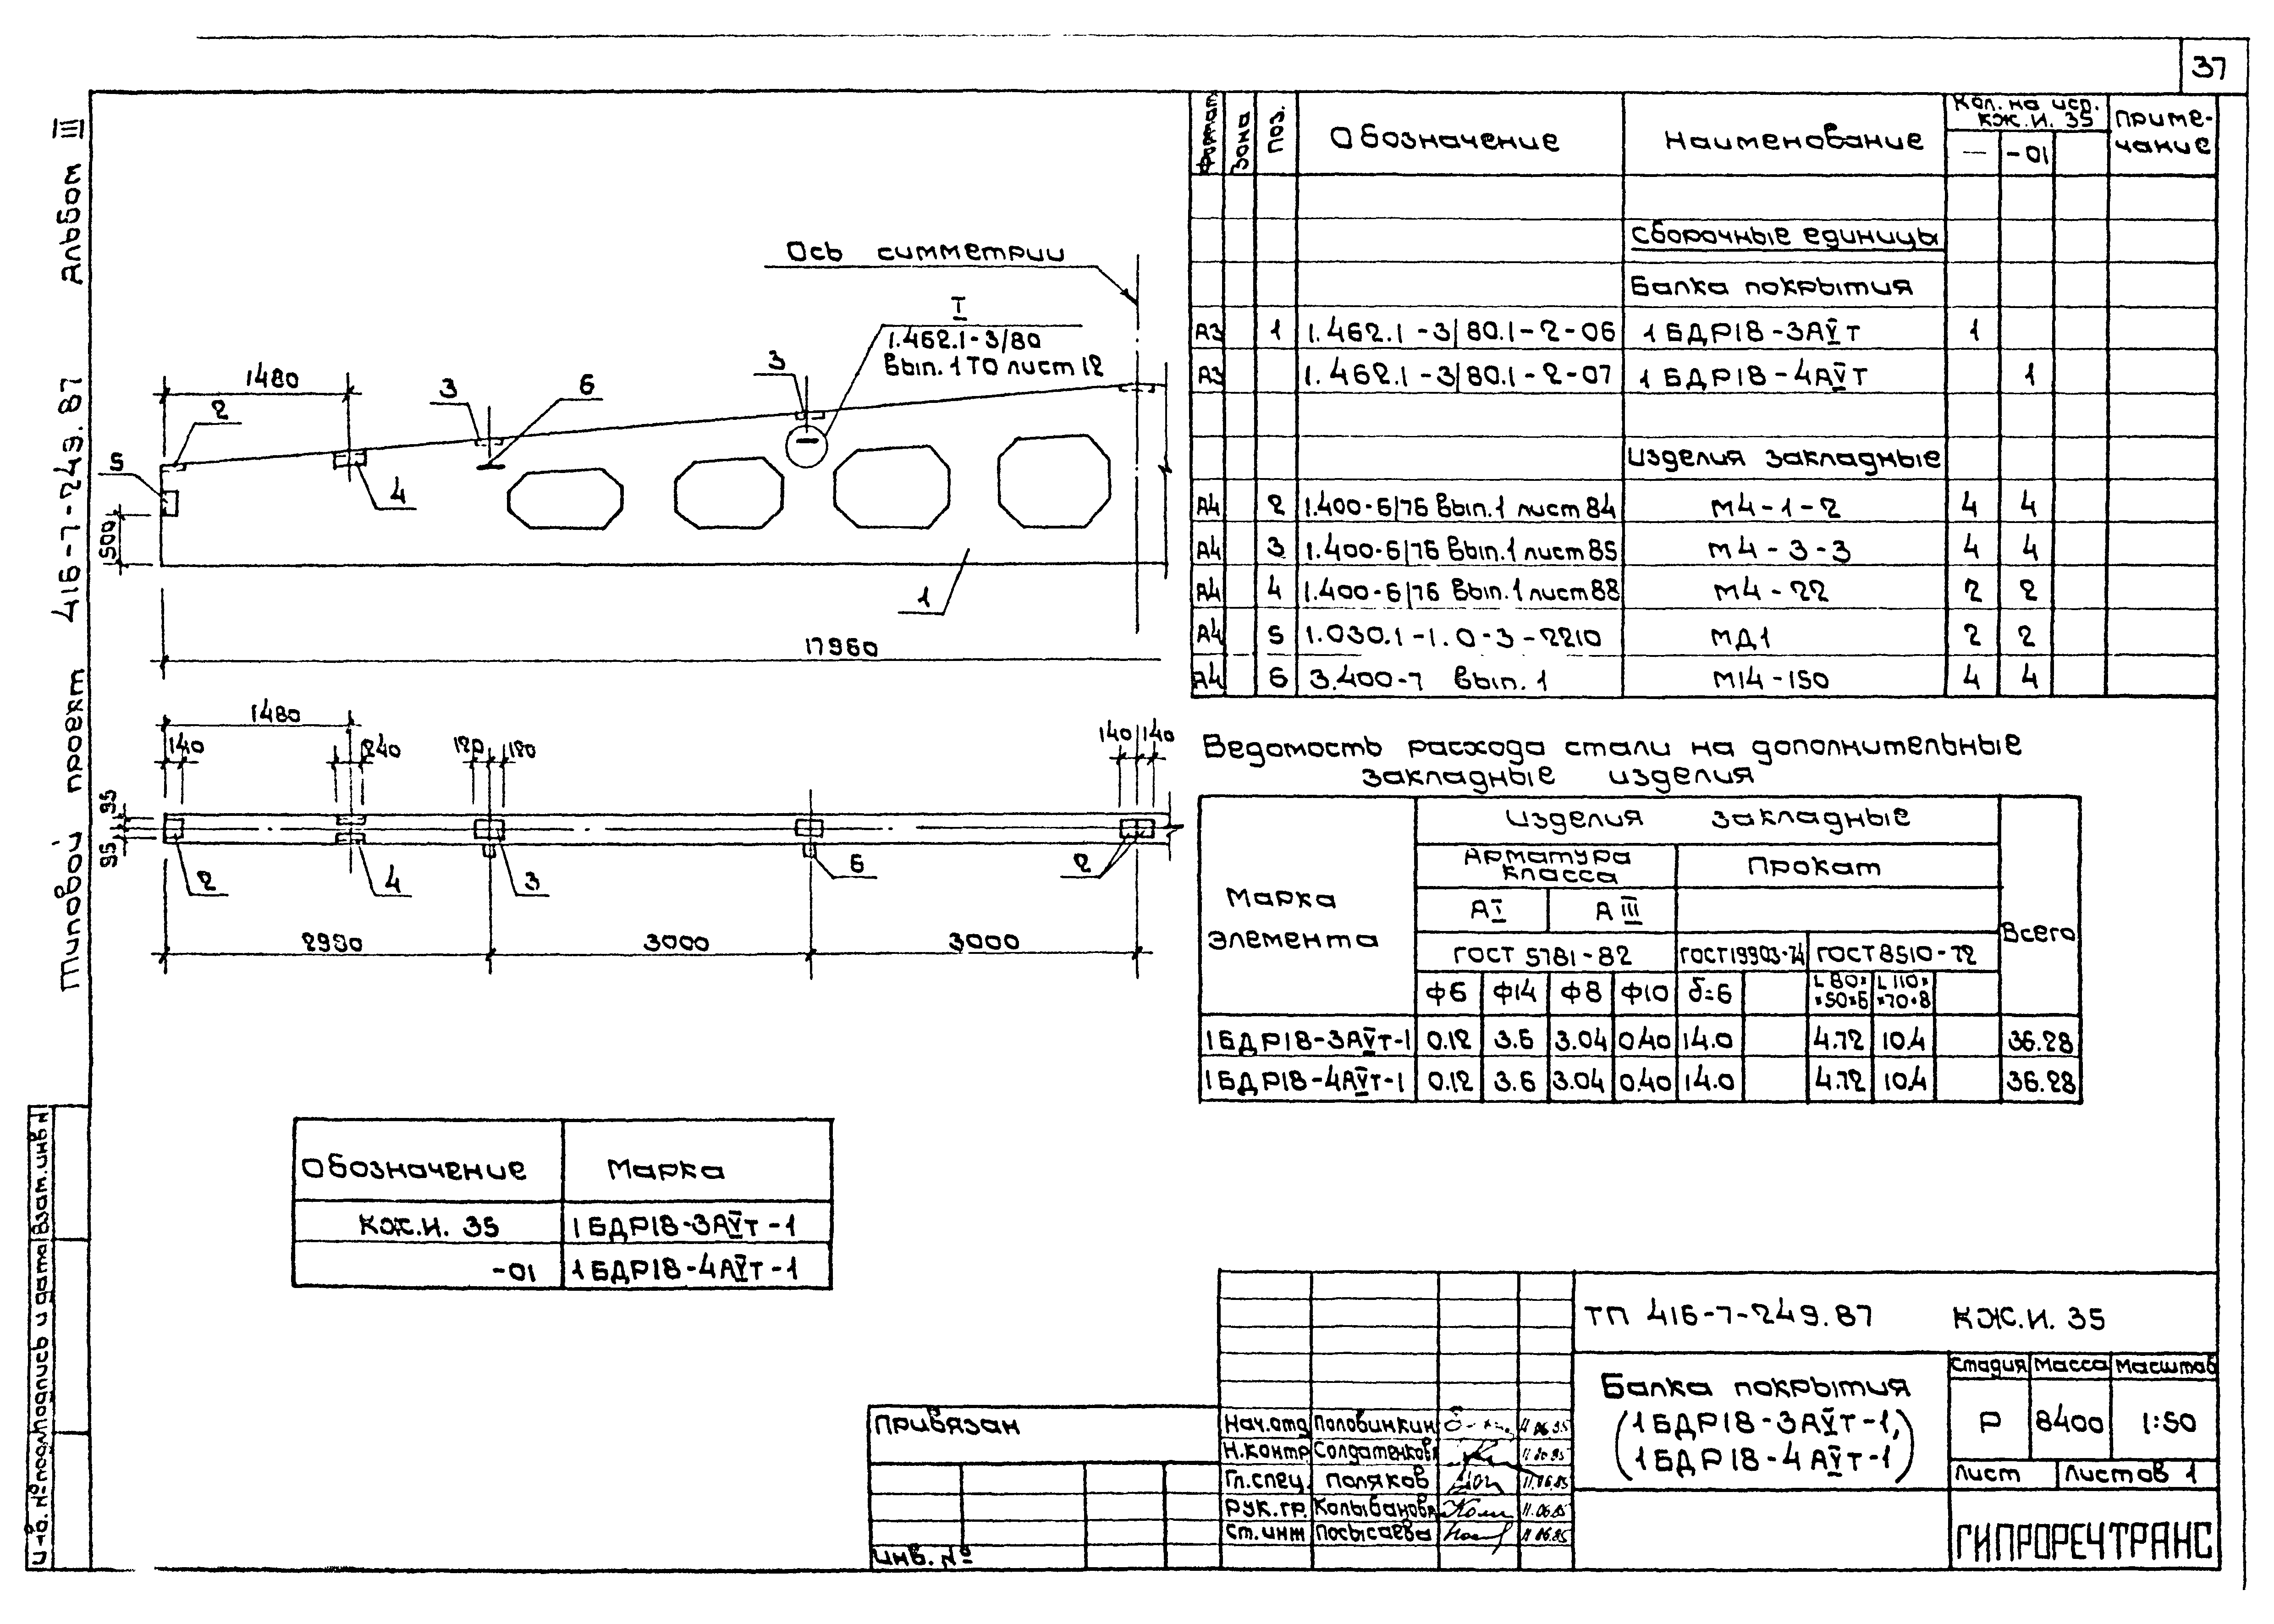 37
Альбом III
Типовой проект 416-7-249.87
Ось симметрии
I
1.462.1-3/80
Вып. 1 ТО лист 12
1480
2
3
6
3
5
4
500
1
17960
1480
140
240
120
180
140
140
95
95
2
4
3
6
2
2980
3000
3000
Формат
Зона
Поз.
Обозначение
Наименование
Кол. на исп.
КЖ.И. 35
— -01
Приме-
чание
Сборочные единицы
Балка покрытия
А3 1 1.462.1-3/80.1-2-06 1БДР18-3АVт 1
А3 1.462.1-3/80.1-2-07 1БДР18-4АVт 1
Изделия закладные
А4 2 1.400-6/76 Вып.1 лист 84 М4-1-2 4 4
А4 3 1.400-6/76 Вып.1 лист 85 М4-3-3 4 4
А4 4 1.400-6/76 Вып.1 лист 88 М4-22 2 2
А4 5 1.030.1-1.0-3-2210 МД1 2 2
А4 6 3.400-7 Вып. 1 М14-150 4 4
Ведомость расхода стали на дополнительные
закладные изделия
Марка
элемента
Изделия закладные
Всего
Арматура
класса
Прокат
АI АIII
ГОСТ 5781-82 ГОСТ 19903-74 ГОСТ 8510-72
Ф6 Ф14 Ф8 Ф10 δ=6 L80×
×50×6 L110×
×70×8
1БДР18-3АVт-1 0.12 3.6 3.04 0.40 14.0 4.72 10.4 36.28
1БДР18-4АVт-1 0.12 3.6 3.04 0.40 14.0 4.72 10.4 36.28
Обозначение Марка
КЖ.И. 35 1БДР18-3АVт-1
-01 1БДР18-4АVт-1
Инв. № подл. Подпись и дата Взам.инв N
Привязан
Инв. №
Нач.отд Половинкин
Н.контр Солдатенкова
Гл.спец. Поляков 11.06.85
Рук.гр. Колыбанова 11.06.85
Ст.инж Посысаева 11.06.85
ТП 416-7-249.87 КЖ.И. 35
Балка покрытия
(1БДР18-3АVт-1,
1БДР18-4АVт-1)
Стадия Масса Масштаб
Р 8400 1:50
Лист Листов 1
ГИПРОРЕЧТРАНС